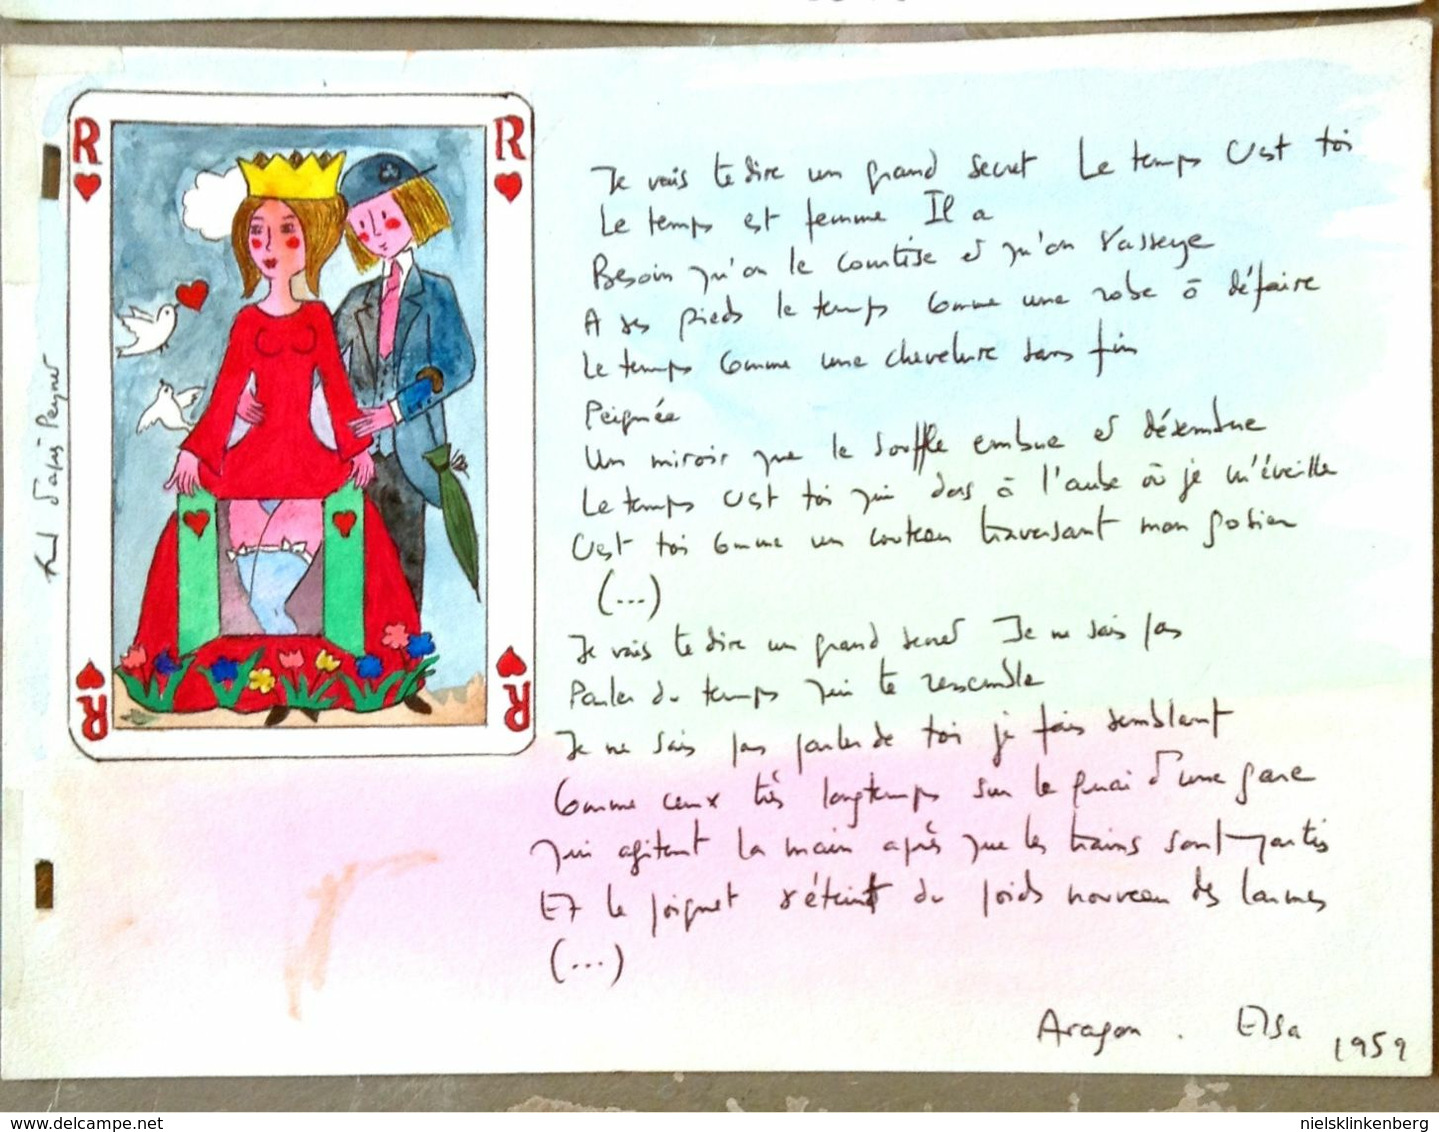 R
R
Je vais te dire un grand secret Le temps c'est toi
Le temps est femme Il a
Besoin qu'on le courtise et qu'on s'asseye
A ses pieds le temps comme une robe à défaire
Le temps comme une chevelure sans fin
Peignée
Un miroir que le souffle embue et désembue
Le temps c'est toi qui dors à l'aube où je m'éveille
C'est toi comme un couteau traversant mon gosier
(...)
Je vais te dire un grand secret Je ne sais pas
Parler du temps qui te ressemble
Je ne sais pas parler de toi je fais semblant
Comme ceux très longtemps sur le quai d'une gare
Qui agitent la main après que les trains sont partis
Et le poignet s'éteint du poids nouveau des larmes
(...)
Aragon . Elsa 1959
d'après Peynet
R
R
www.delcampe.net
nielsklinkenberg